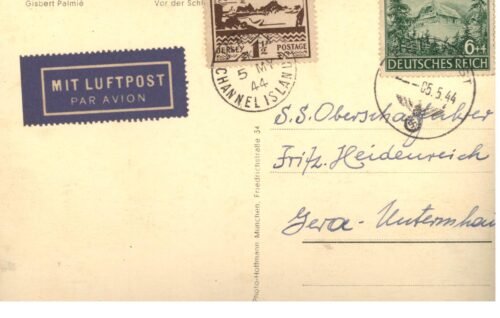 Gisbert Palmié
Vor der Schl
JERSEY POSTAGE
1½
MIT LUFTPOST
PAR AVION
5 MY
44
CHANNEL ISLAN
6+4
DEUTSCHES REICH
ST
05.5.44
S.S. Oberscharführer
Fritz Heidenreich
Gera-Untermhau
Photo-Hoffmann München, Friedrichstraße 34